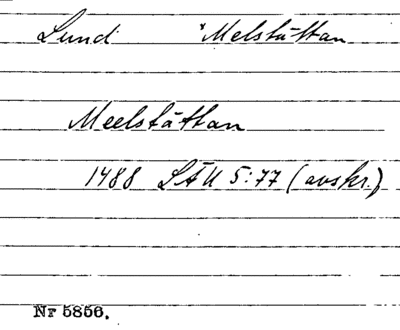 Lund *Melstättan
Meelstättan
1488 LÄU 5:77 (avskr.)
Nr 5856.